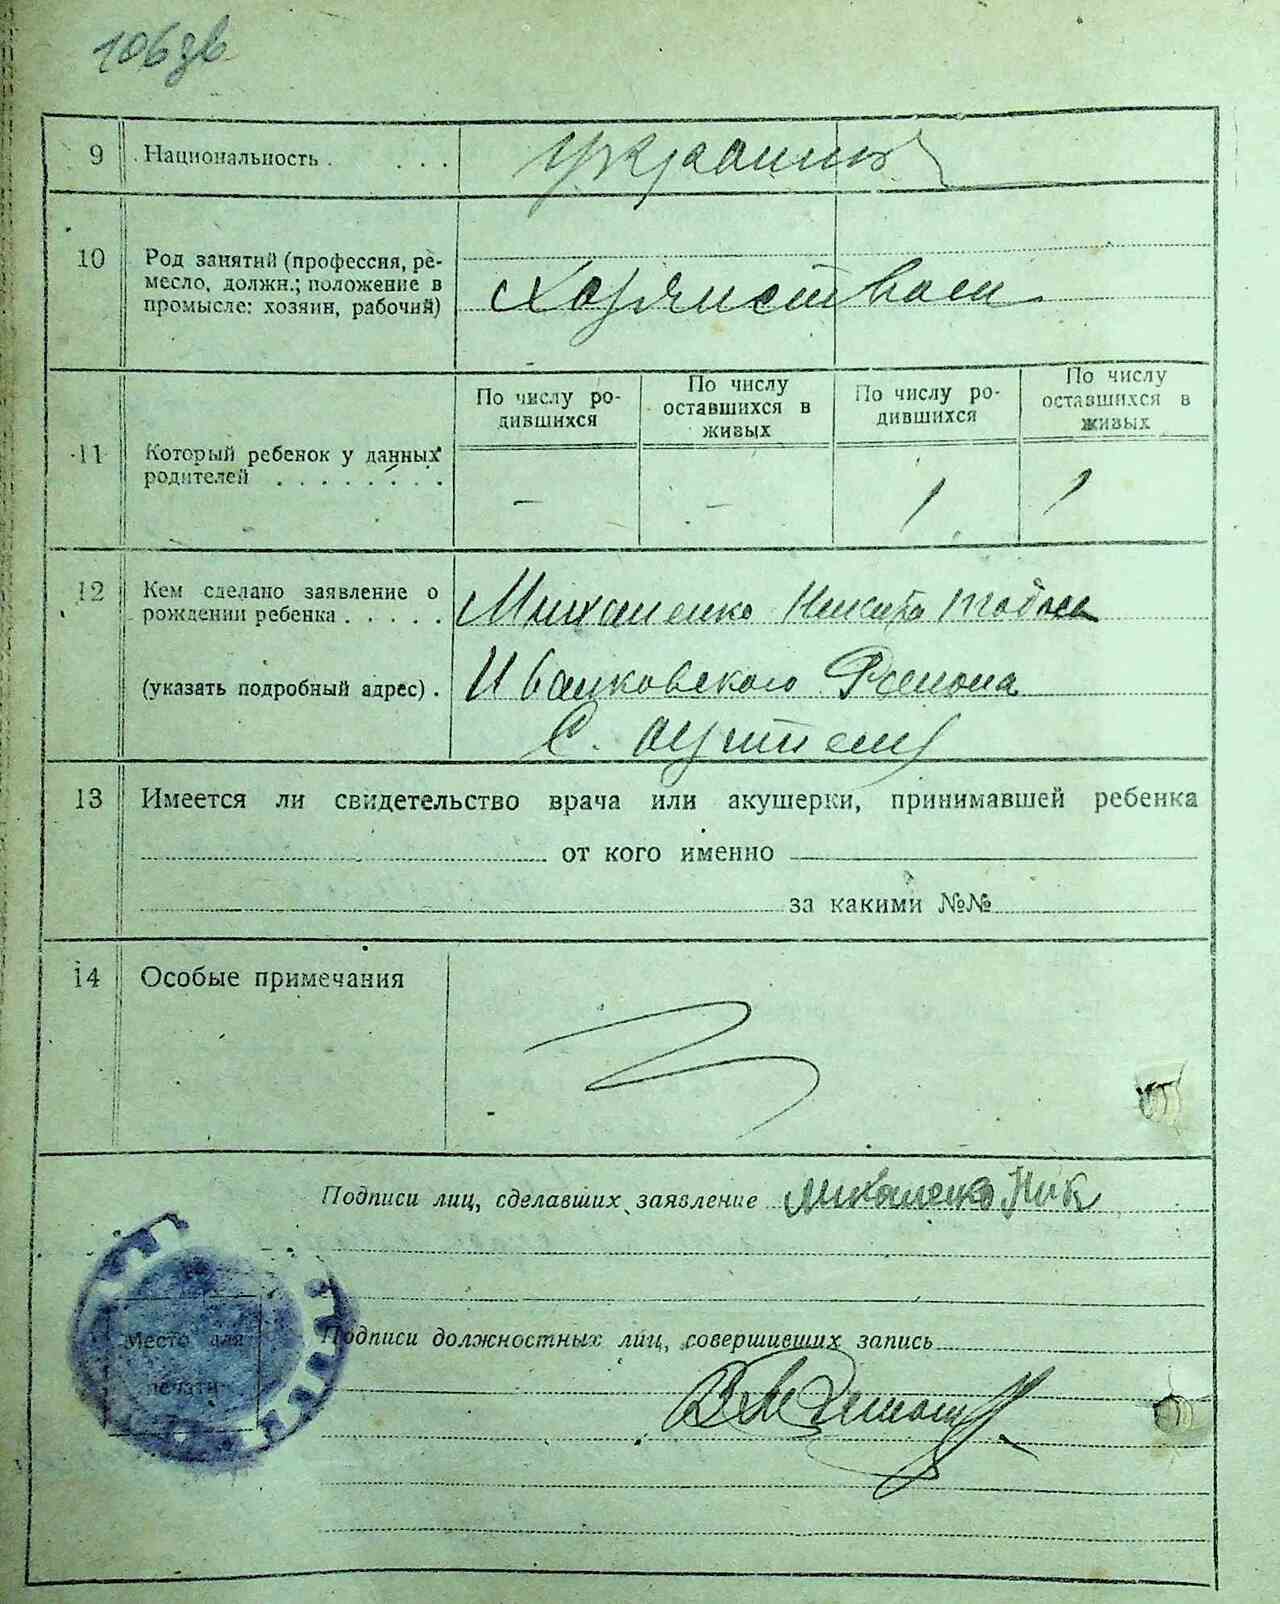 106 зв
9 Национальность . . . .
10 Род занятий (профессия, ре-
месло, должн.; положение в
промысле: хозяин, рабочий)
По числу ро-
дившихся
По числу
оставшихся в
живых
По числу ро-
дившихся
По числу
оставшихся в
живых
11 Который ребенок у данных
родителей . . . . . . . .
- - 1 1
12 Кем сделано заявление о
рождении ребенка . . . . .
(указать подробный адрес) .
Иванковского Района
С.
13 Имеется ли свидетельство врача или акушерки, принимавшей ребенка
от кого именно
за какими №№
14 Особые примечания
Подписи лиц, сделавших заявление
Место для
печати
Подписи должностных лиц, совершивших запись